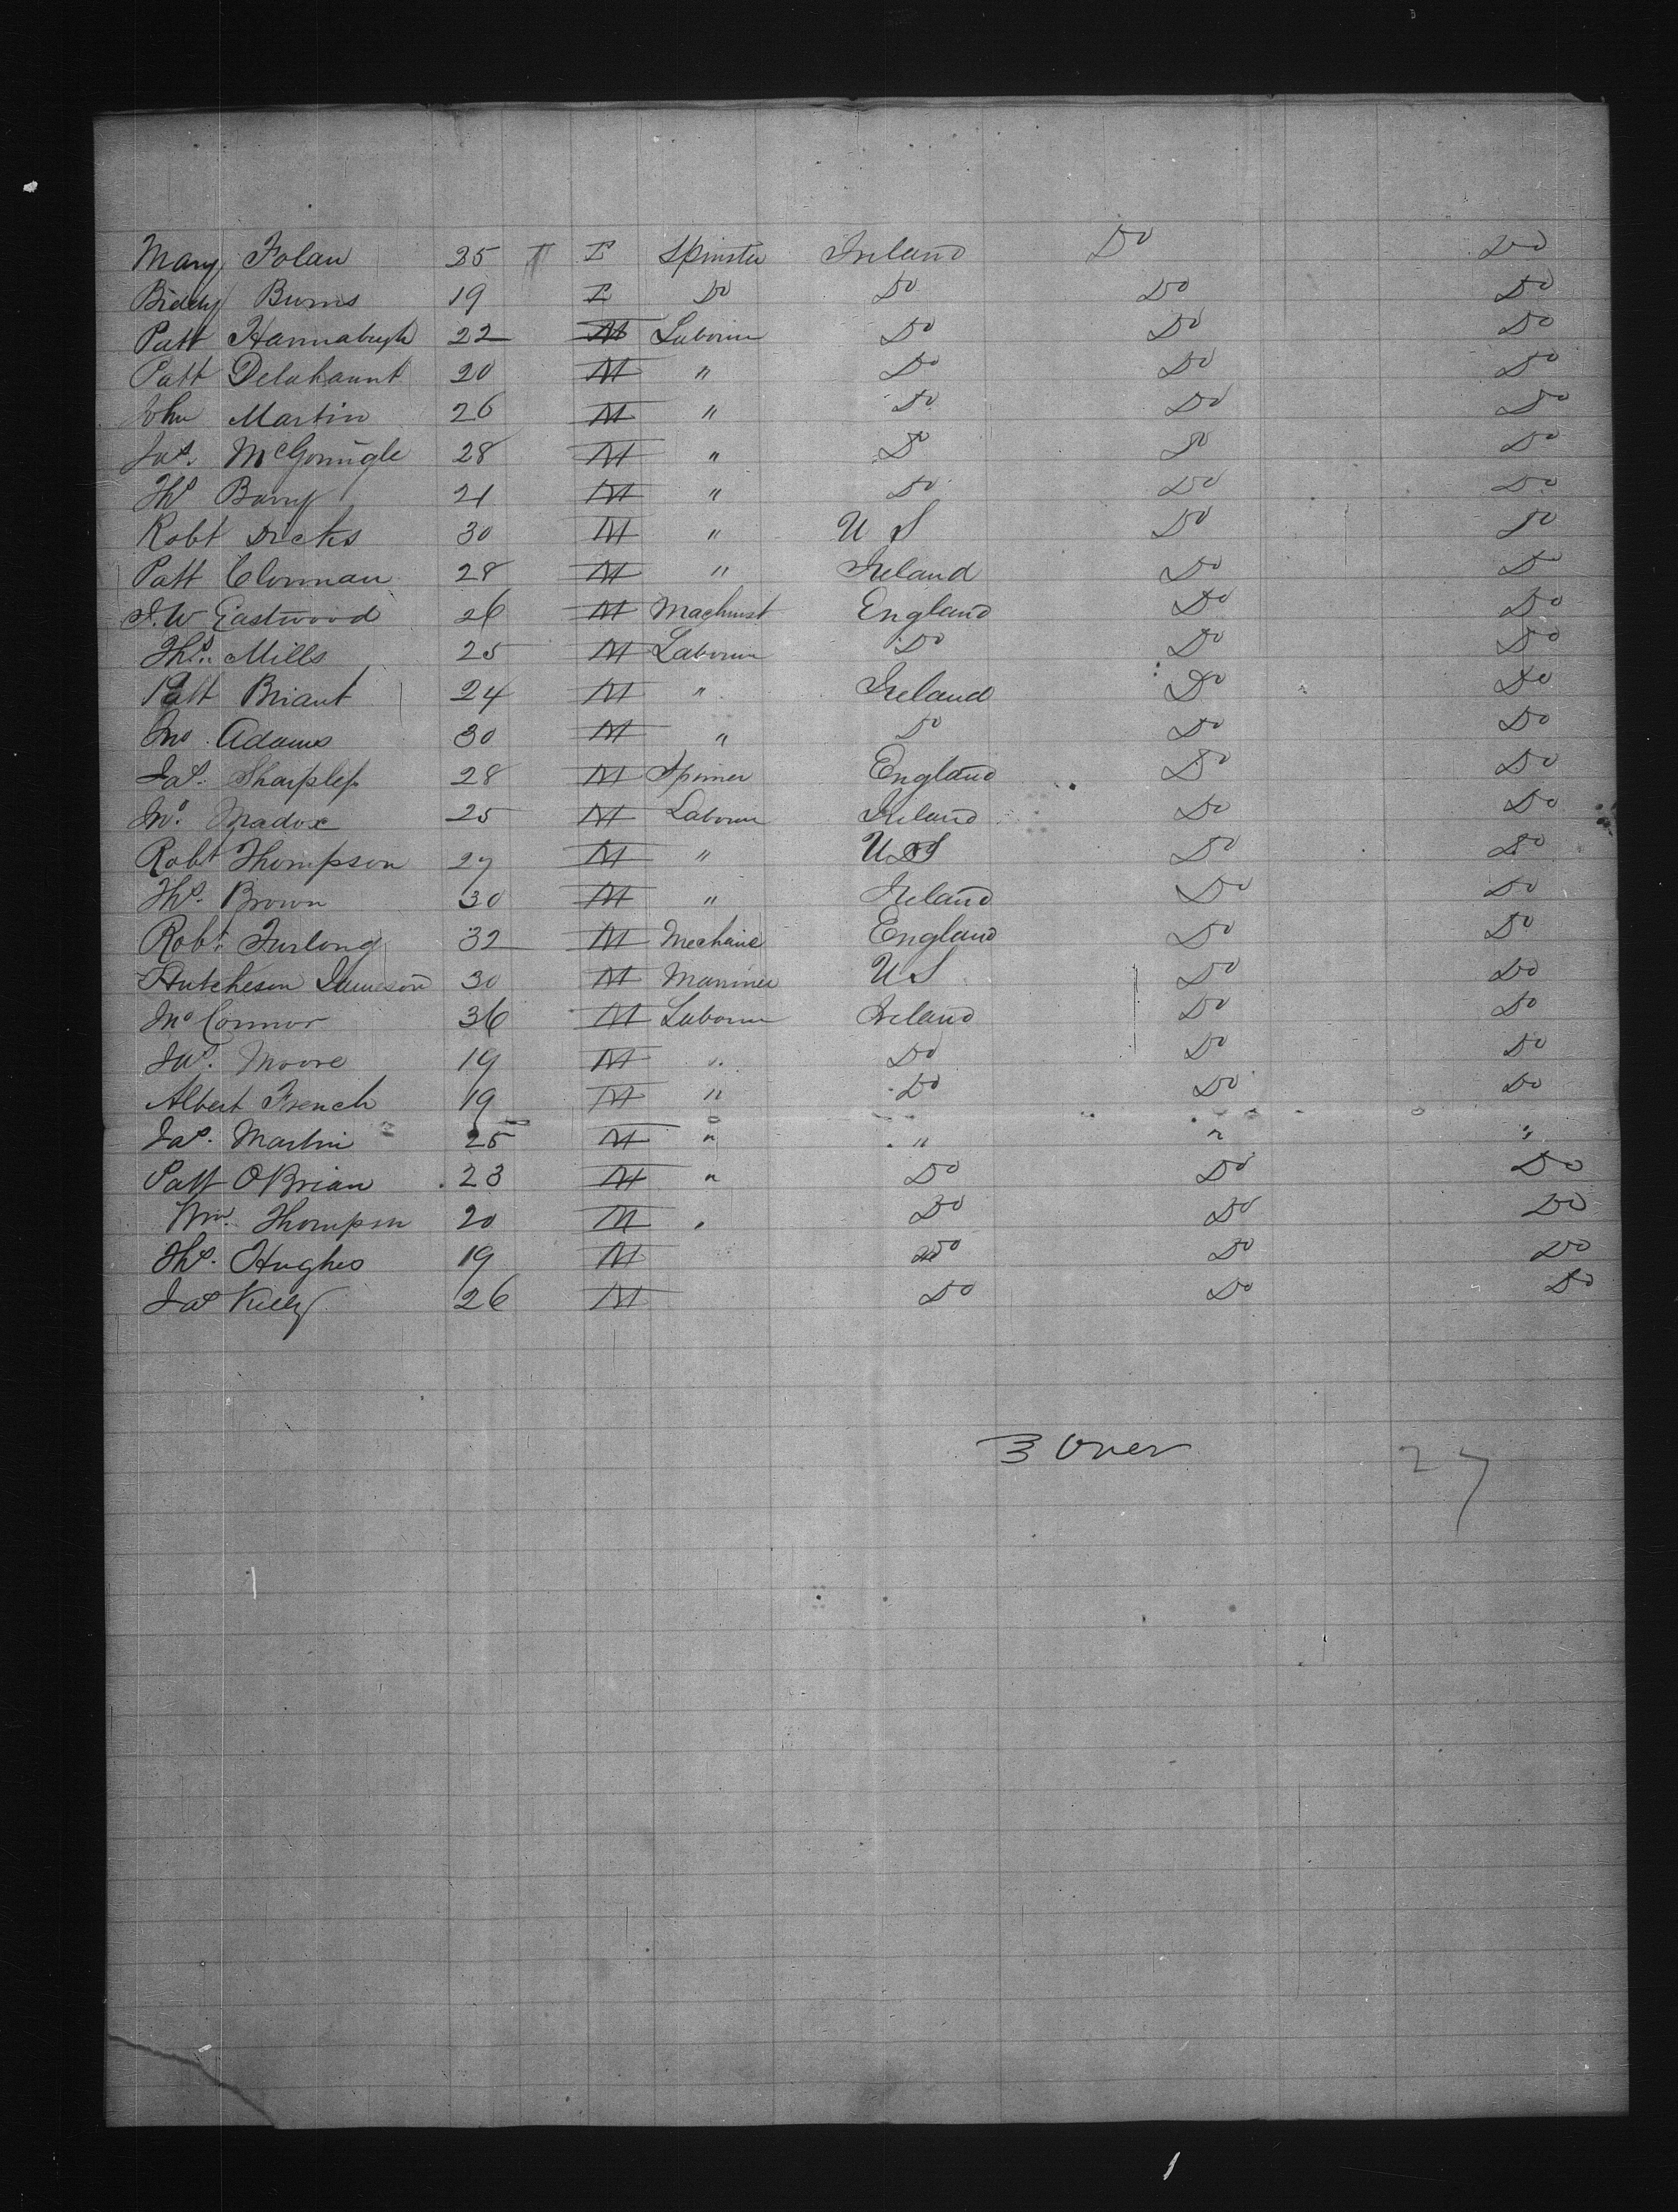 Mary Folan 35 F Spinster Ireland Do Do
Biddy Burns 19 F Do Do Do Do
Patt Hannabugh 22 M Laborer Do Do Do
Patt Delahaunt 20 M " Do Do Do
John Martin 26 M " Do Do Do
Jas. McGonigle 28 M " Do Do Do
Ths Barry 21 M " Do Do Do
Robt Dicks 30 M " U S Do Do
Patt Clonnan 28 M " Ireland Do Do
J. W Eastwood 26 M Machinst England Do Do
Ths. Mills 25 M Laborer Do Do Do
Patt Briant 24 M " Ireland Do Do
Jno. Adams 30 M " Do Do Do
Jas. Sharpless 28 M Spinner England Do Do
Jno. Madox 25 M Laborer Ireland Do Do
Robt Thompson 27 M " U S Do Do
Ths. Brown 30 M " Ireland Do Do
Robt. Furlong 32 M Mechanic England Do Do
Hutcheson Jameson 30 M Marriner U S Do Do
Jno Connor 36 M Laborer Ireland Do Do
Jas. Moore 19 M " Do Do Do
Albert French 19 M " Do Do Do
Jas. Martin 25 M " " " "
Patt OBrian 23 M " Do Do Do
Wm. Thompson 20 M " Do Do Do
Ths. Hughes 19 M Do Do Do
Jas Kelly 26 M Do Do Do
3 Over 27